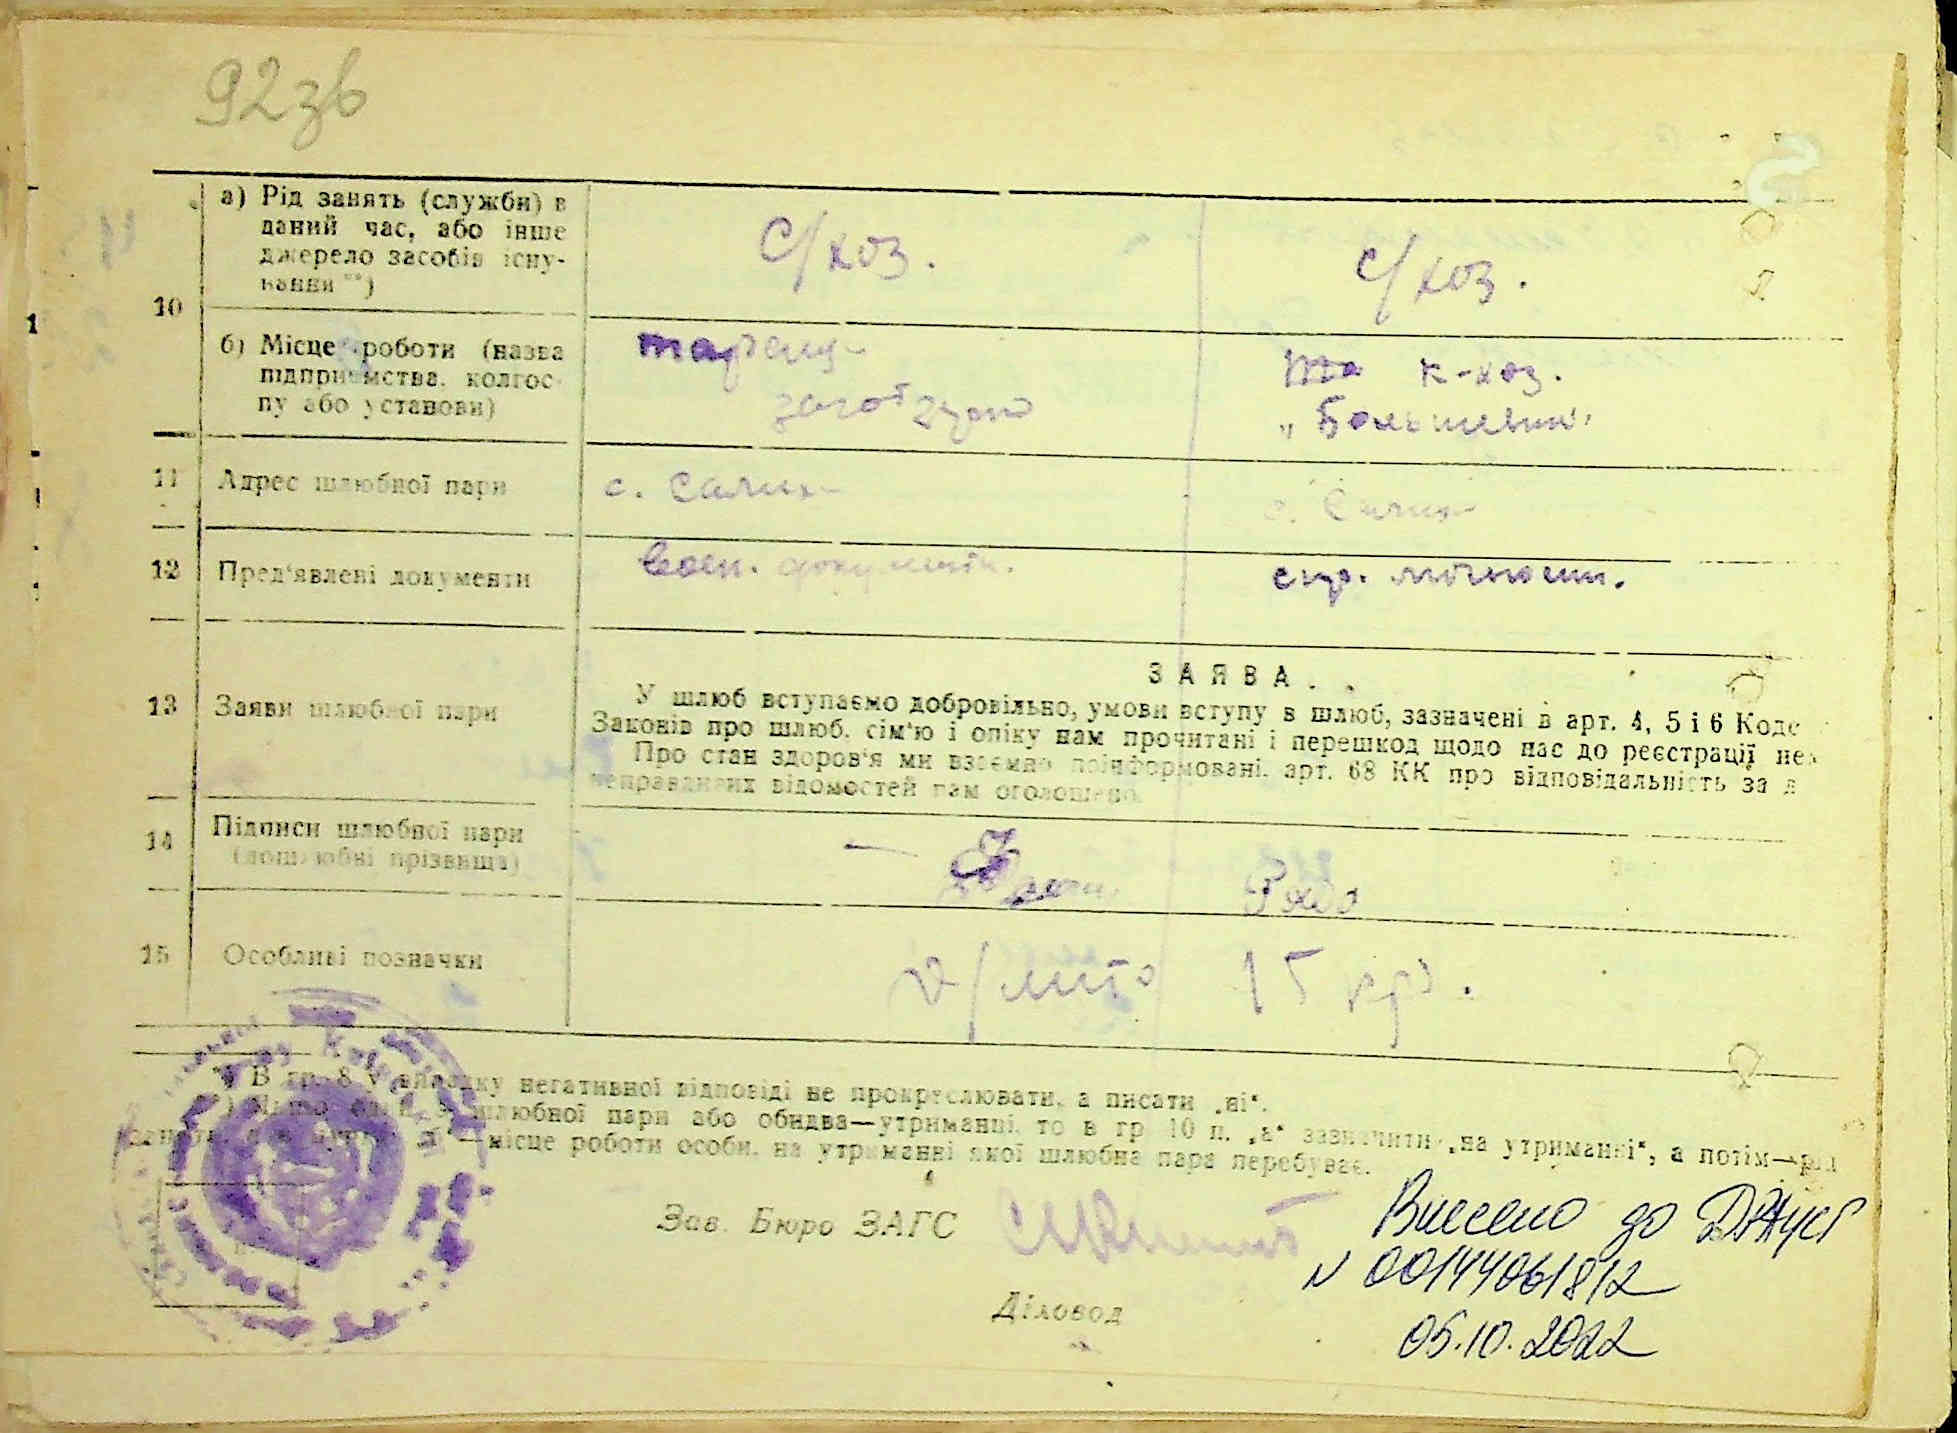 92зв
а) Рід занять (служби) в
даний час, або інше
джерело засобів існу-
вання **)
С/хоз.
с/хоз.
10
б) Місце роботи (назва
підприємства, колгос-
пу або установи)
к-хоз.
„Большевик"
11 Адрес шлюбної пари
с.
с.
12 Пред'явлені документи
воен. документ.
спр.
ЗАЯВА
13 Заяви шлюбної пари
У шлюб вступаємо добровільно, умови вступу в шлюб, зазначені в арт. 4, 5 і 6 Коде
Законів про шлюб, сім'ю і опіку нам прочитані і перешкод щодо нас до реєстрації нем
Про стан здоров'я ми взаємно поінформовані, арт. 68 КК про відповідальність за д
неправдивих відомостей нам оголошено.
14 Підписи шлюбної пари
(дошлюбні прізвища)
15 Особливі позначки
д/мито 15 крб.
*) В гр. 8 у випадку негативної відповіді не прокреслювати, а писати „ні".
шлюбної пари або обидва—утриманці, то в гр 10 п. „а" зазначити „на утриманні", а потім—рід
місце роботи особи, на утриманні якої шлюбна пара перебуває.
Зав. Бюро ЗАГС
Діловод
Внесено до ДРАЦСГ
N 00144061812
05.10.2022